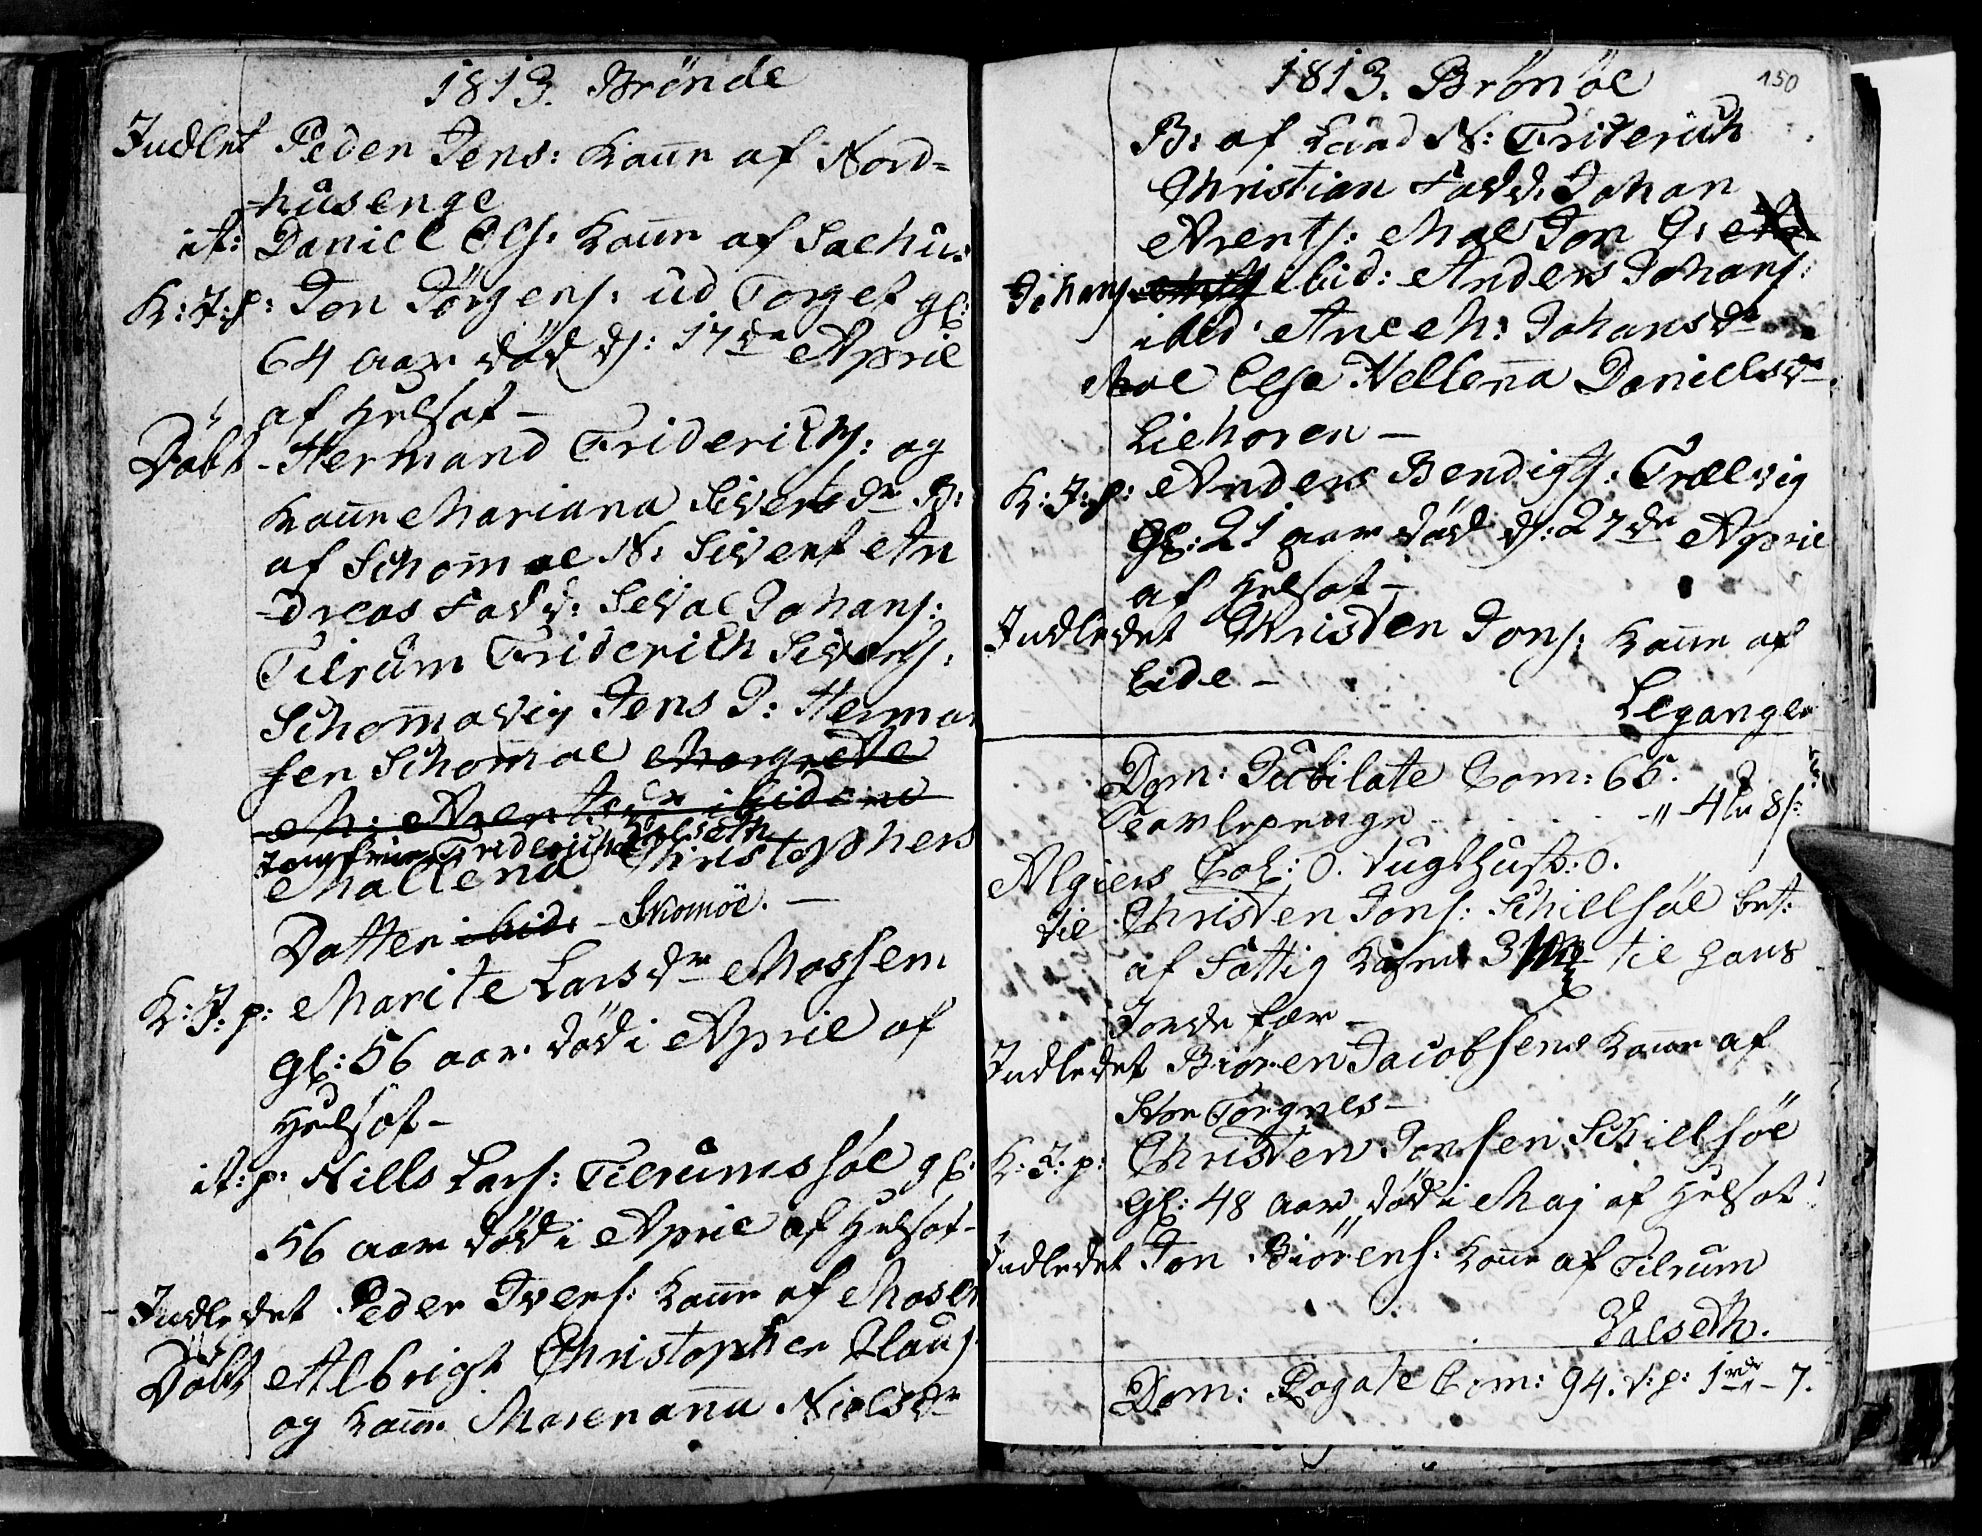 1813. Brönöe
Indlet Peder Jens: Konne af Nord-
husenge
it: Daniel Ols: Konne af Saehus
K: J: p: Jon Jörgens: ud Torget gl:
64 aar död d: 17de April
af Helsot -
Döbt - Hermand Friderichs: og
Konne Mariana Sivertsdr B:
af Schomoe N: Sivert An
-dreas Fadd: Sevae Johans:
Tilrum Friderich Siverts:
Schomavig Jens P: Herman
sen Schomoe Margrethe
M: Arentsdr ibidem
Jomfrue Fridericha Valseth
Mallena Christophers
Datter ibid: - Skomöe. -
K: J: p: Marite Larsdr Mossem
gl: 56 aar död i April af
Helsot -
it: p: Nills Lars: Tilrumssöe gl:
56 aar död i April af Helsot -
Indledet Peder Ivers: Konne af Mosem
Döbt Albrigt Christopher Olaus:
og Konne Marenanna Nielsdr
1813. Brönöe
150
B: af Eind N: Friterich
Christian Fadd: Johan
Arents: Moe Jon
Johans ibid: Anders Johans:
ibid: Ane M: Johansdr
Moe Else Hellena Danielsdr
Liehoren -
K: J: p: Anders Bendigts: Trælvig
Gl: 21 aar död d: 27de April
af Helsot -
Indledet Christen Jons: Konne af
Eide -
Leganger
Dom: Jubilate Com: 65.
Tavlepenge - . . . . -" - 4 8 s:
Algiers Col: 0. Tugthuset: 0.
til Christen Jons: Schillsöe bet:
af Fattig Kasen 3 til hans
Jorde fær -
Indledet Biören Jacobsens Konne af
Stor Torgnes -
K: J: p: Christen Jonsen Schillsöe
Gl: 48 aar död i Maj af Helsot
Indledet Jon Biörens: Konne af Tilrum
Valseth.
Dom: Rogate Com: 94. T: p: 1rd - 7.